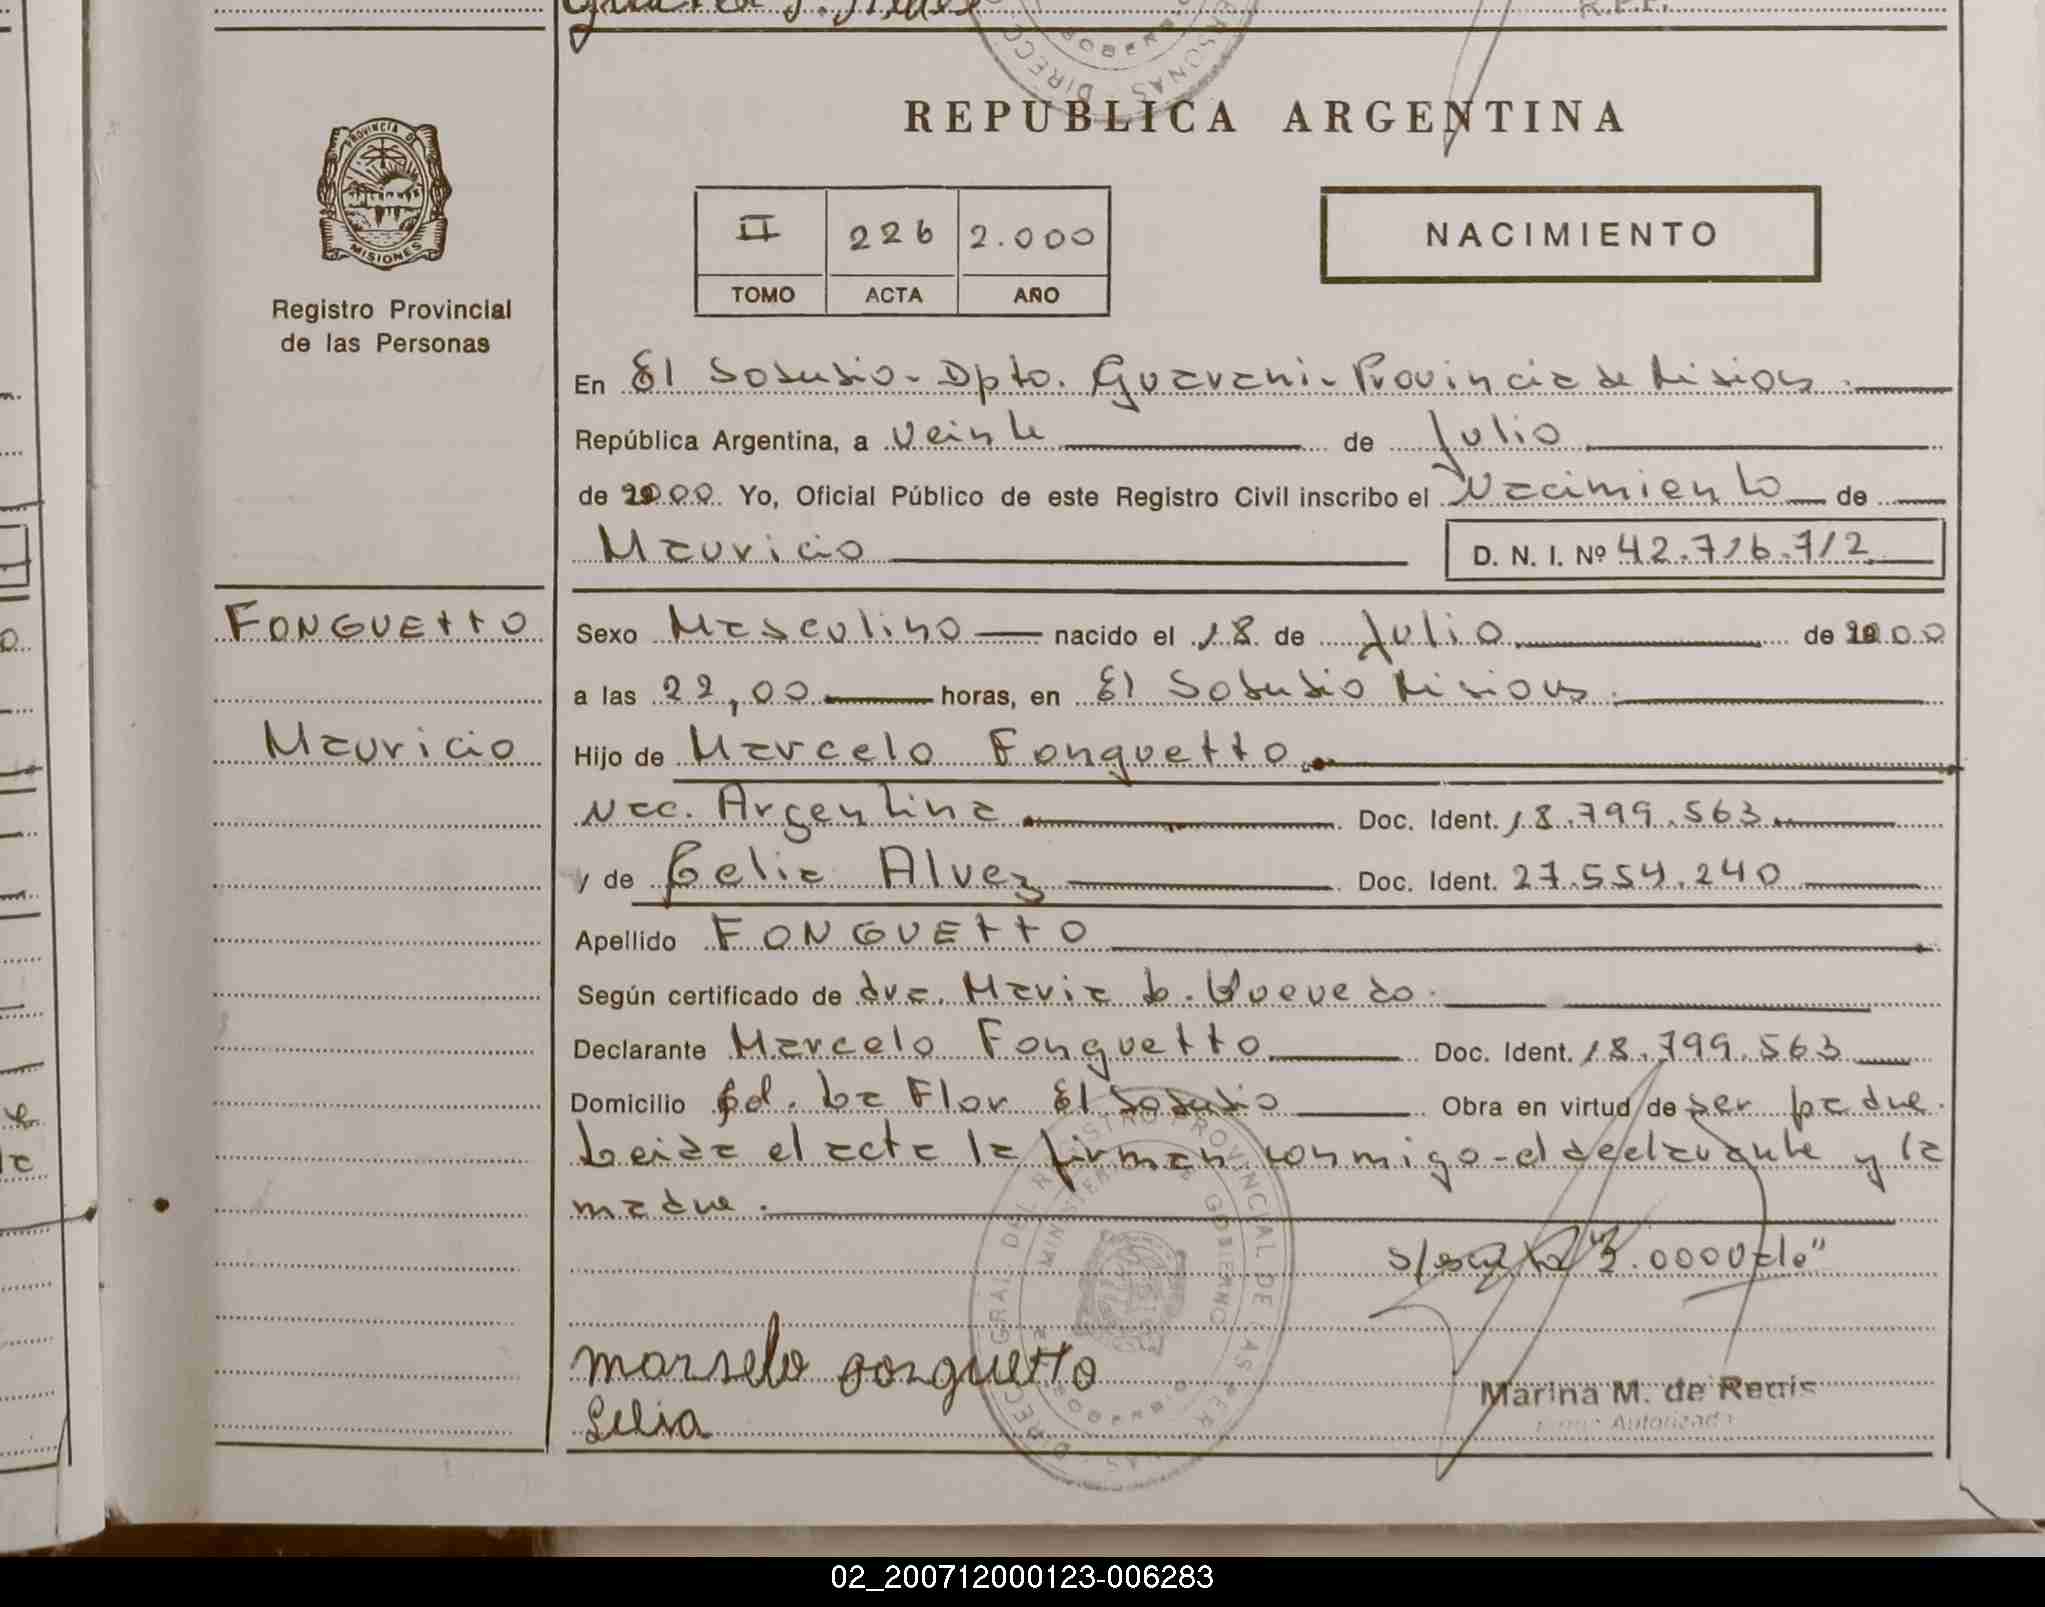 REPUBLICA ARGENTINA
PROVINCIA DE MISIONES
Registro Provincial
de las Personas
II 226 2.000
TOMO ACTA AÑO
NACIMIENTO
En El Soberbio - Dpto. Guarani - Provincia de Misiones.
República Argentina, a Veinte de Julio
de 2000 Yo, Oficial Público de este Registro Civil inscribo el Nacimiento de
Mauricio
D. N. I. Nº 42.716.712
FONGUETTO
Mauricio
Sexo Masculino nacido el 18 de Julio de 2000
a las 22,00 horas, en El Soberbio Misiones.
Hijo de Marcelo Fonguetto.
Nac. Argentina Doc. Ident. 18.799.563
y de Celia Alvez Doc. Ident. 27.554.240
Apellido FONGUETTO
Según certificado de dra. Maria
Declarante Marcelo Fonguetto Doc. Ident. 18.799.563
Domicilio Col. La Flor El Soberbio Obra en virtud de ser padre.
Leida el acta la firman conmigo - el declarante y la
madre.
.000 Vale"
marselo gonguetto
Selia
Marina M. de Regis
Autorizada
DIRECC. GRAL. DEL REGISTRO PROVINCIAL DE LAS PERSONAS
MINISTERIO DE GOBIERNO
02_200712000123-006283